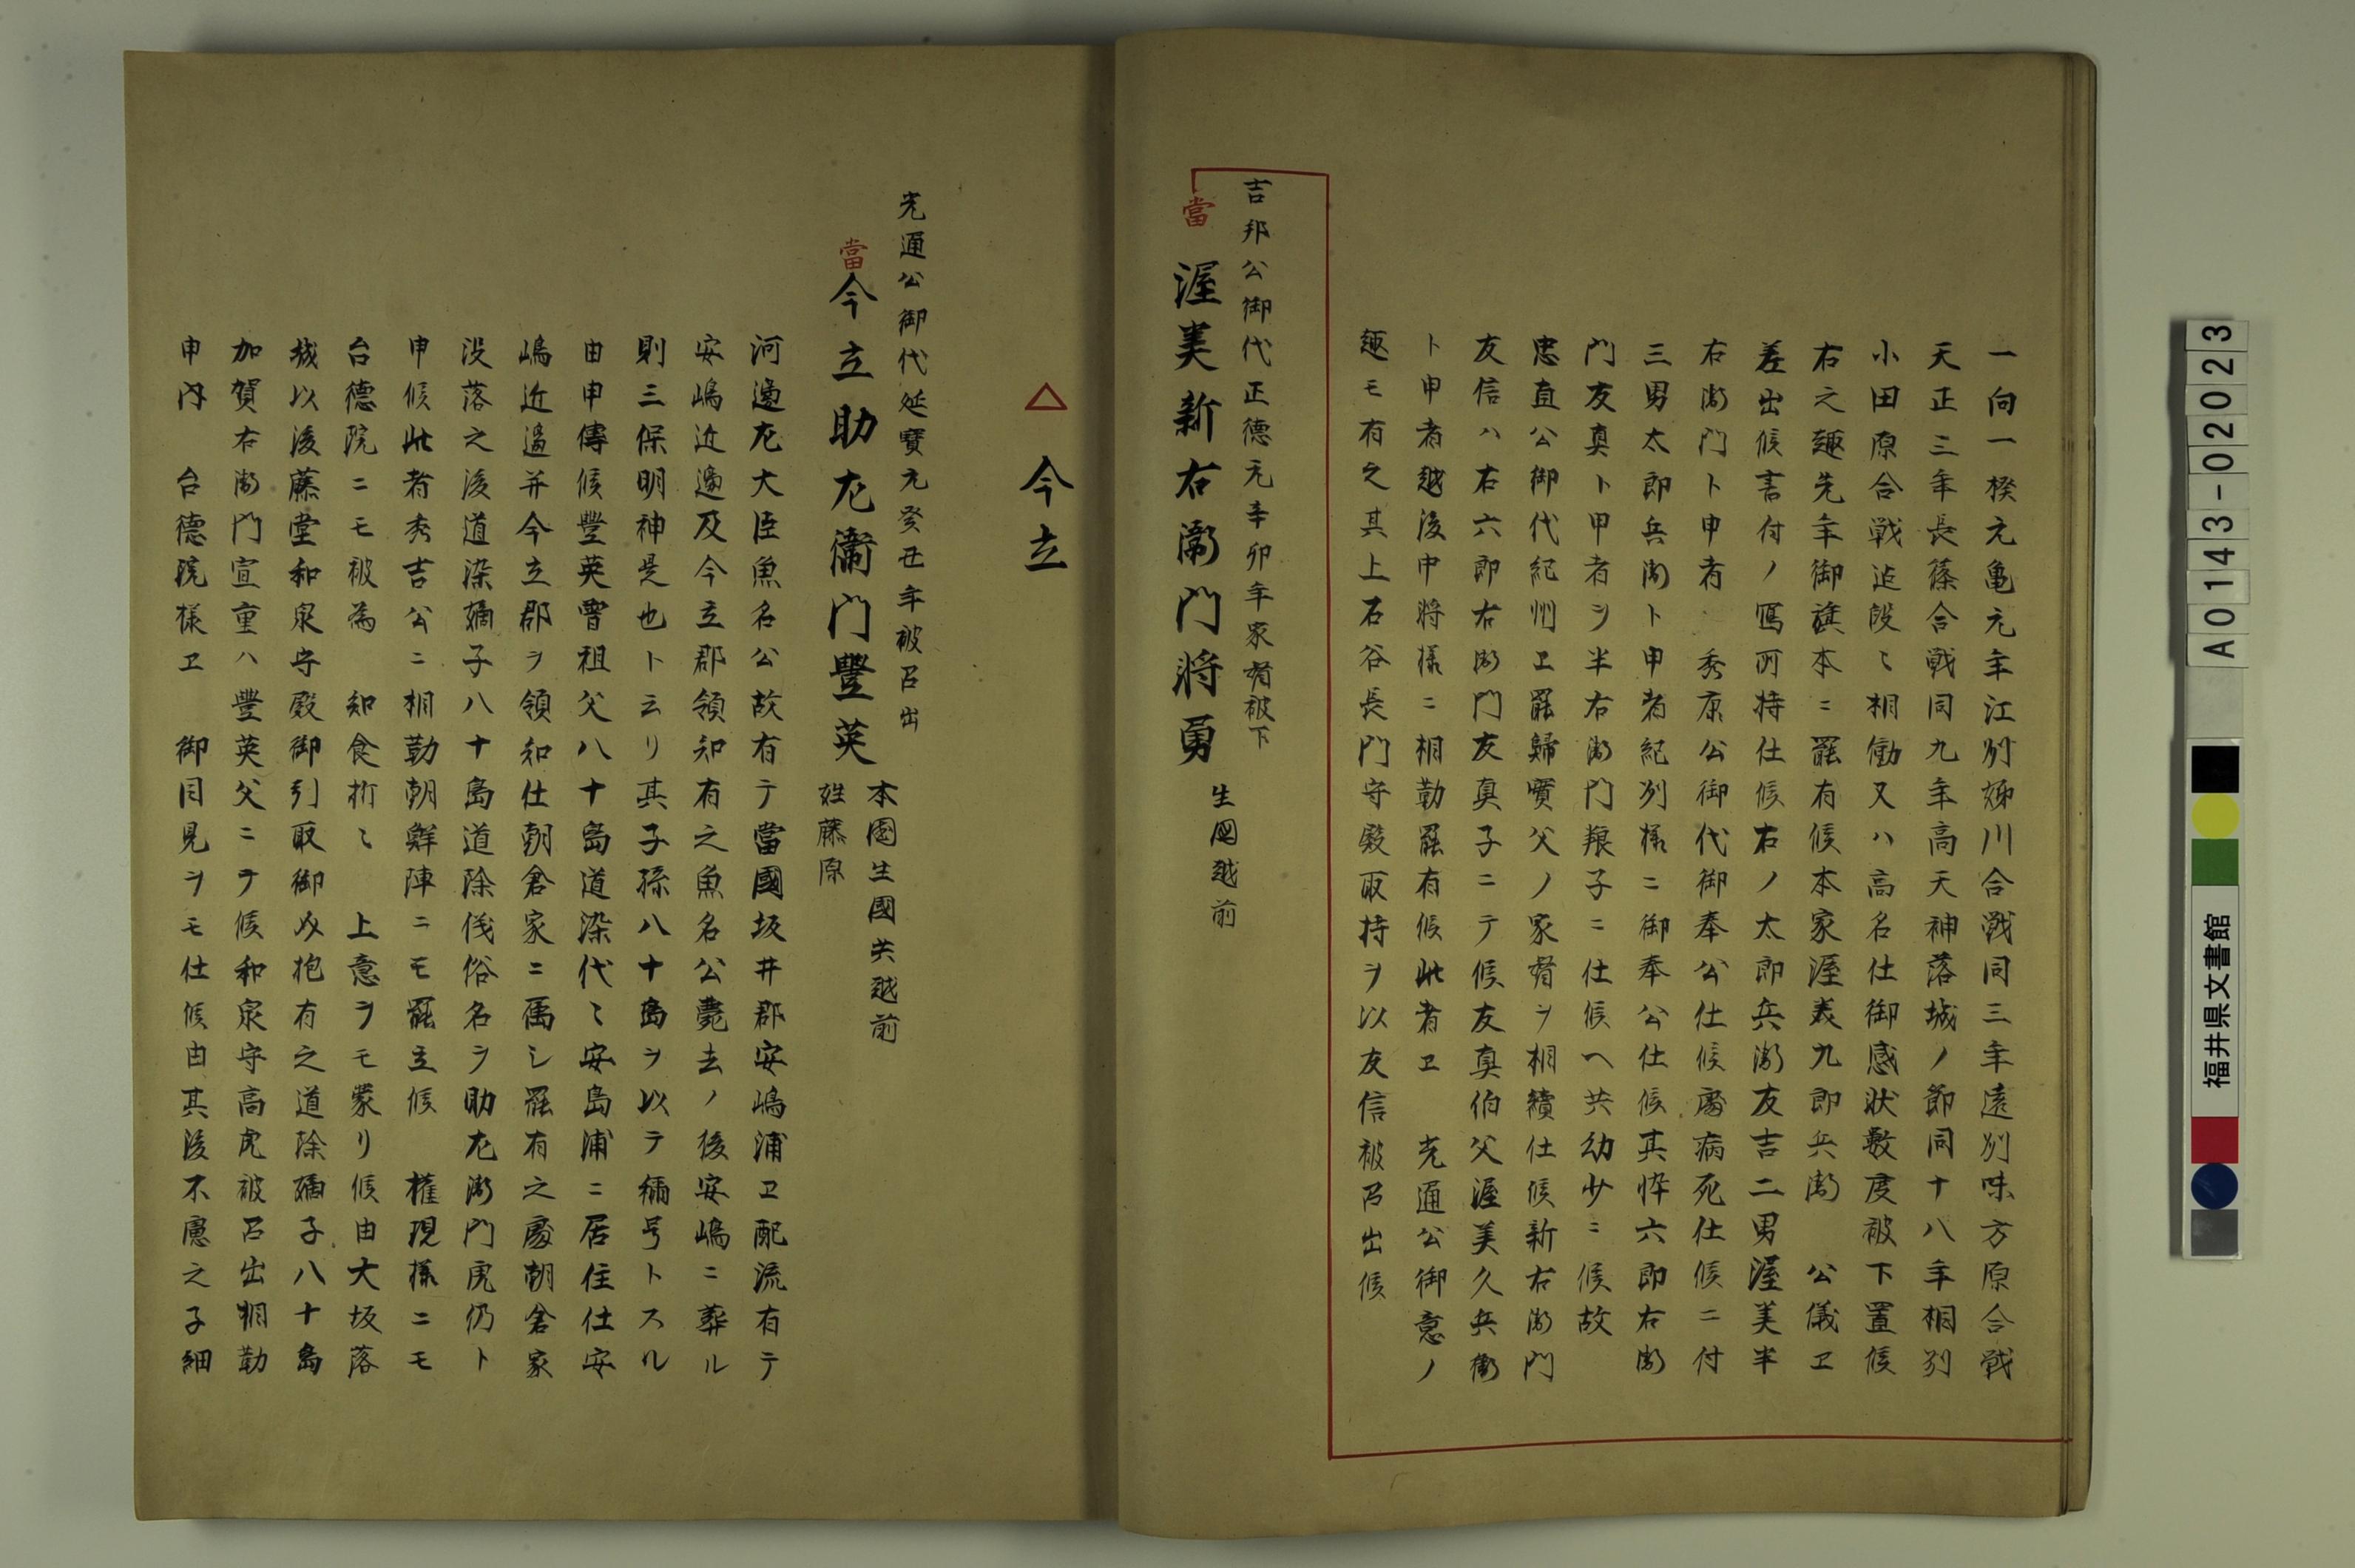 一向一揆元亀元年江州姉川合戦同三年遠州味方原合戦
天正三年長篠合戦同九年高天神落城ノ節同十八年相州
小田原合戦迠段々相働又ハ高名仕御感状数度被下置候
右之趣先年御旗本ニ罷有候本家渥美九郎兵衛　公儀エ
差出候書付ノ写所持仕候右ノ太郎兵衛友吉二男渥美半
右衛門ト申者　秀康公御代御奉公仕候処病死仕候ニ付
三男太郎兵衛ト申者紀州様ニ御奉公仕候其忰六郎右衛
門友真ト甲者ヲ半右衛門粮子ニ仕候ヘ共幼少ニ候故
忠直公御代紀州エ罷帰實父ノ家督ヲ相續仕候新右衛門
友信ハ右六郎右衛門友真子ニテ候友真伯父渥美久兵衛
ト申者越後中将様ニ相勤罷有候此者エ　光通公御意ノ
趣モ有之其上石谷長門守殿取持ヲ以友信被召出候
吉邦公御代正德元辛卯年家督被下
當　渥美新右衛門将勇　生國越前
△　今立
光通公御代延寳元癸丑年被召出
當　今立助左衛門豐英　本國生國共越前
姓藤原
河邊左大臣魚名公故有テ當國坂井郡安嶋浦エ配流有テ
安嶋近邊及今立郡領知有之魚名公薨去ノ後安嶋ニ葬ル
則三保明神是也ト云リ其子孫八十島ヲ以テ稱号トスル
由申傳候豐英曽祖父八十島道染代々安島浦ニ居住仕安
嶋近邊并今立郡ヲ領知仕朝倉家ニ属シ罷有之處朝倉家
没落之後道染嫡子八十島道除後俗名ヲ助左衛門虎仍ト
申候此者秀吉公ニ相勤朝鮮陣ニモ罷立候　権現様ニモ
台德院ニモ被為　知食折々　上意ヲモ蒙リ候由大坂落
城以後藤堂和泉守殿御引取御召抱有之道除嫡子八十島
加賀右衛門宣重ハ豐英父ニテ候和泉守高虎被召出相勤
申内　台德院様エ　御目見ヲモ仕候由其後不慮之子細
A0143-02023
福井県文書館